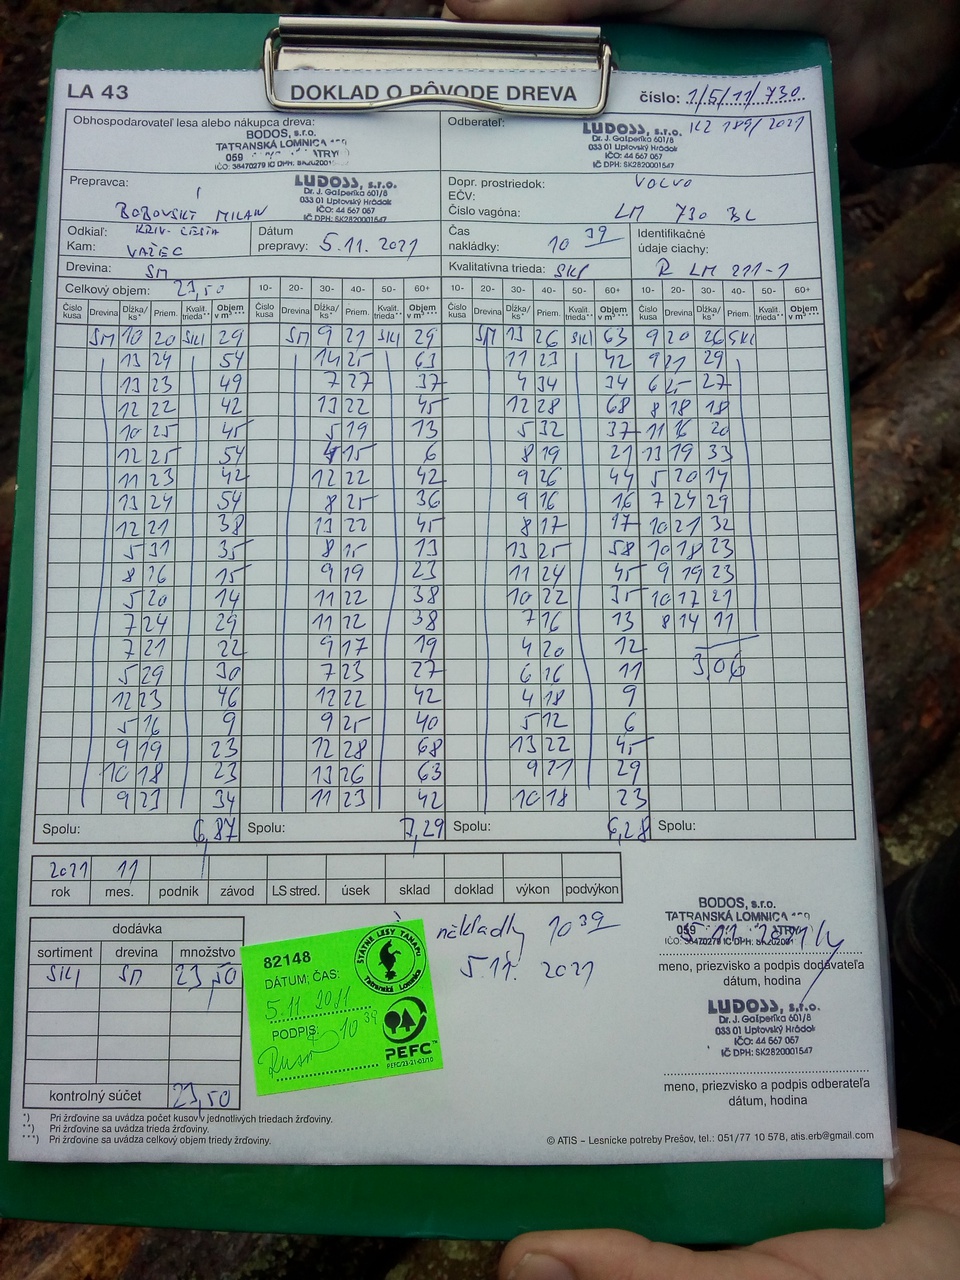 LA 43 DOKLAD O PÔVODE DREVA číslo: 1/5/11/730
Obhospodarovateľ lesa alebo nákupca dreva:
BODOS, s.r.o.
TATRANSKÁ LOMNICA
059
Odberateľ:
LUDOSS, s.r.o. KZ 189/2021
Dr. J. Gašperíka 601/8
033 01 Liptovský Hrádok
IČO: 44 567 057
IČ DPH: SK2820001547
Prepravca:
BOBOVSKÝ MILAN
LUDOSS, s.r.o.
Dr. J. Gašperíka 601/8
033 01 Liptovský Hrádok
IČO: 44 567 057
IČ DPH: SK2820001547
Dopr. prostriedok: VOLVO
EČV:
Číslo vagóna: LM 730 BL
Odkiaľ: KRIV. CESTA
Kam: VAŽEC
Dátum prepravy: 5.11.2021
Čas nakládky: 10 39
Identifikačné údaje ciachy:
R LM 211-1
Drevina: SM
Kvalitatívna trieda: SKI
Celkový objem: 23,50 10- 20- 30- 40- 50- 60+ 10- 20- 30- 40- 50- 60+ 10- 20- 30- 40- 50- 60+
Číslo kusa Drevina Dĺžka/ks* Priem. Kvalit. trieda** Objem v m³ *** Číslo kusa Drevina Dĺžka/ks* Priem. Kvalit. trieda** Objem v m³ *** Číslo kusa Drevina Dĺžka/ks* Priem. Kvalit. trieda** Objem v m³ *** Číslo kusa Drevina Dĺžka/ks* Priem. Kvalit. trieda** Objem v m³ ***
SM 10 20 SKI 29 SM 9 21 SKI 29 SM 13 26 SKI 63 9 20 26 SKI
13 24 54 14 25 63 11 23 42 9 21 29
13 23 49 7 27 37 4 34 34 6 25 27
12 22 42 13 22 45 12 28 68 8 18 18
10 25 45 5 19 13 5 32 37 11 16 20
12 25 54 4 15 6 8 19 21 13 19 33
11 23 42 12 22 42 9 26 44 5 20 14
13 24 54 8 25 36 9 16 16 7 24 29
12 21 38 13 22 45 8 17 17 10 21 32
5 31 35 8 15 13 13 25 58 10 18 23
8 16 15 9 19 23 11 24 45 9 19 23
5 20 14 11 22 38 10 22 35 10 17 21
7 24 29 11 22 38 7 16 13 8 14 11
7 21 22 9 17 19 4 20 12
5 29 30 7 23 27 6 16 11 3,06
12 23 46 12 22 42 4 18 9
5 16 9 9 25 40 5 12 6
9 19 23 12 28 68 13 22 45
10 18 23 13 26 63 9 21 29
9 23 34 11 23 42 10 18 23
Spolu: 6,87 Spolu: 7,29 Spolu: 6,28 Spolu:
2021 11
rok mes. podnik závod LS stred. úsek sklad doklad výkon podvýkon
dodávka
sortiment drevina množstvo
SKI SM 23,50
kontrolný súčet 23,50
82148
DÁTUM, ČAS:
5.11.2011
PODPIS: 10 39
ŠTÁTNE LESY TANAPU
Tatranská Lomnica
PEFC™
nákladky 10 39
5.11. 2021
BODOS, s.r.o.
TATRANSKÁ LOMNICA
059
meno, priezvisko a podpis dodávateľa
dátum, hodina
LUDOSS, s.r.o.
Dr. J. Gašperíka 601/8
033 01 Liptovský Hrádok
IČO: 44 567 057
IČ DPH: SK2820001547
meno, priezvisko a podpis odberateľa
dátum, hodina
*) Pri žrďovine sa uvádza počet kusov v jednotlivých triedach žrďoviny.
**) Pri žrďovine sa uvádza trieda žrďoviny.
***) Pri žrďovine sa uvádza celkový objem triedy žrďoviny.
© ATIS – Lesnícke potreby Prešov, tel.: 051/77 10 578, atis.erb@gmail.com